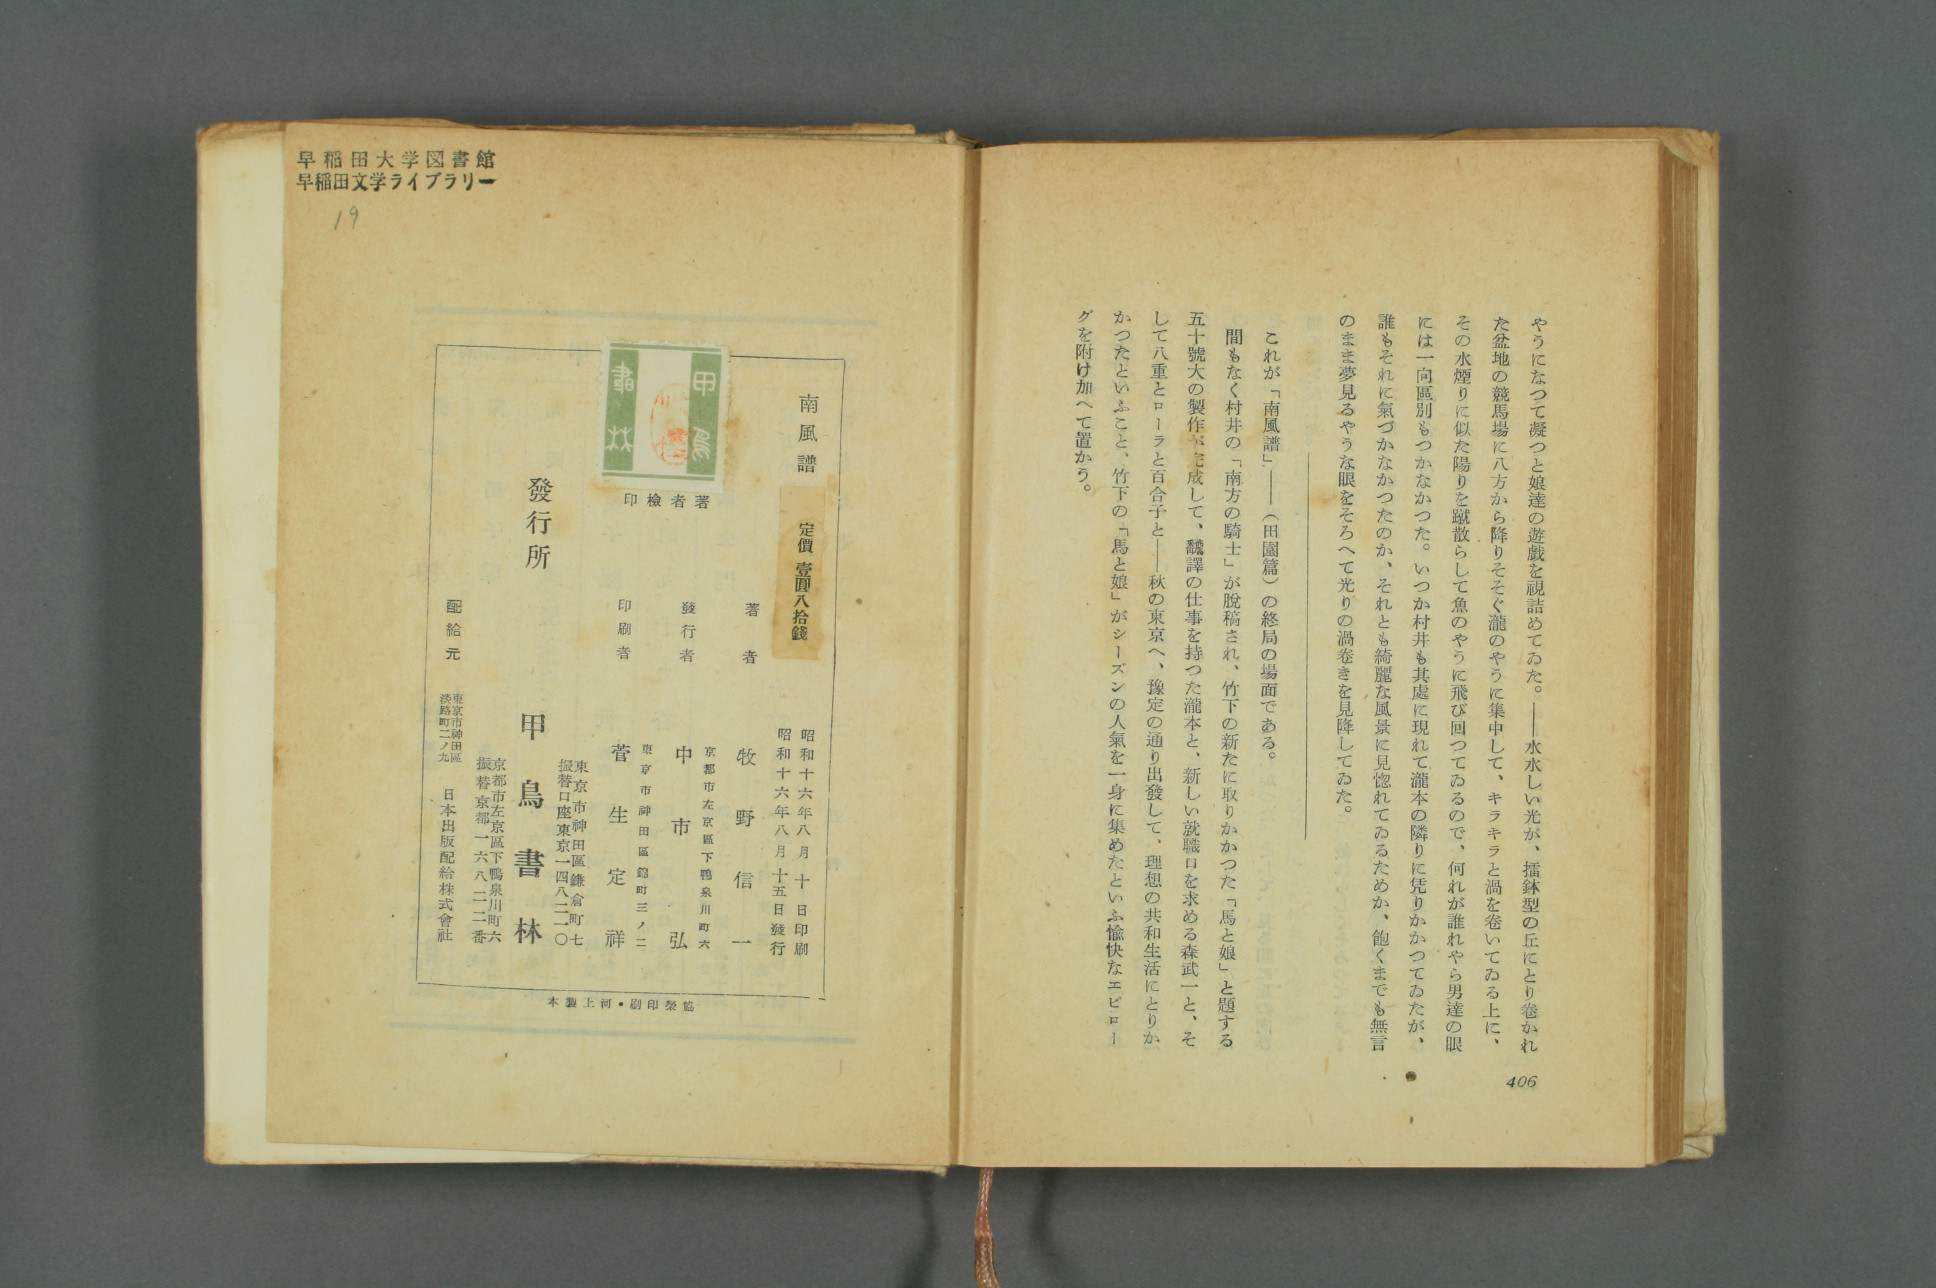 やうになつて凝つと娘達の遊戯を視詰めてゐた。――水水しい光が、擂鉢型の丘にとり巻かれ
た盆地の競馬場に八方から降りそそぐ瀧のやうに集中して、キラキラと渦を巻いてゐる上に、
その水煙りに似た陽りを蹴散らして魚のやうに飛び回つてゐるので、何れが誰れやら男達の眼
には一向區別もつかなかつた。いつか村井も其處に現れて瀧本の隣りに凭りかかつてゐたが、
誰もそれに氣づかなかつたのか、それとも綺麗な風景に見惚れてゐるためか、飽くまでも無言
のまま夢見るやうな眼をそろへて光りの渦巻きを見降してゐた。
これが「南風譜」――(田園篇)の終局の場面である。
間もなく村井の「南方の騎士」が脱稿され、竹下の新たに取りかかつた「馬と娘」と題する
五十號大の製作が完成して、飜譯の仕事を持つた瀧本と、新しい就職口を求める森武一と、そ
して八重とローラと百合子と――秋の東京へ、豫定の通り出發して、理想の共和生活にとりか
かつたといふこと、竹下の「馬と娘」がシーズンの人氣を一身に集めたといふ愉快なエピロー
グを附け加へて置かう。
406
早稲田大学図書館
早稲田文学ライブラリー
19
南風譜
定價 壹圓八拾錢
甲鳥
書林
著者檢印
昭和十六年八月十日印刷
昭和十六年八月十五日發行
著者 牧野信一
京都市左京區下鴨泉川町六
發行者 中市弘
東京市神田區錦町三ノ二
印刷者 菅生定祥
東京市神田區鎌倉町七
振替口座東京一四八二二〇
發行所 甲鳥書林
京都市左京區下鴨泉川町六
振替京都一六八二一二番
配給元 東京市神田區
淡路町二ノ九 日本出版配給株式會社
協榮印刷・河上製本